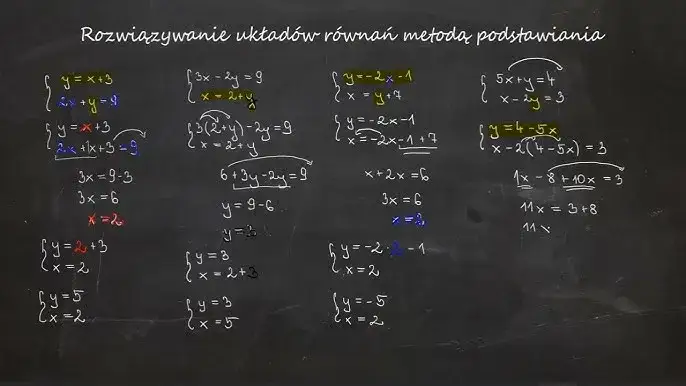 Rozwiązywanie układów równań metodą podstawiania
y = x+3
2x+y = 9
y = x+3
2x+1x+3 = 9
3x = 9-3
3x = 6
x = 2
y = 2+3
x = 2
y = 5
x = 2
3x-2y = 9
x = 2+y
3(2+y)-2y = 9
x = 2+y
6+3y-2y = 9
y = 9-6
y = 3
y = 3
x = 2+3
y = 3
x = 5
y = -2x-1
x = y+7
y = -2x-1
x = -2x-1+7
x+2x = 6
3x = 6
x = 2
y = -2·2-1
x = 2
y = -5
x = 2
5x+y = 4
x-2y = 3
y = 4-5x
x-2(4-5x) = 3
1x-8+10x = 3
11x = 3+8
11